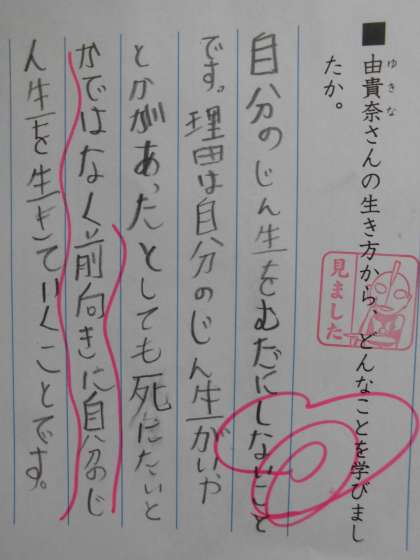 ■由貴奈さんの生き方から、どんなことを学びまし
ゆきな
たか。
見ました
自分のじん生をむだにしないこと
です。理由は自分のじん生がいや
とかがあったとしても死にたいと
かではなく、前向きに自分のじ
ん生を生きていくことです。